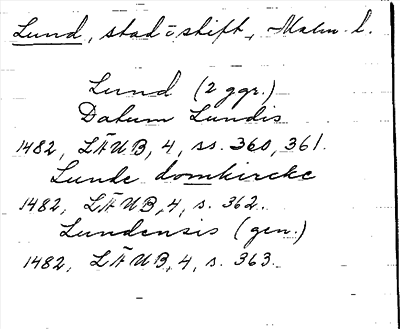 Lund, stad o stift, Malm. l.
Lund (2 ggr.)
Datum Lundis
1482, LÄUB, 4, ss. 360, 361.
Lunde domkircke
1482, LÄUB, 4, s. 362.
Lundensis (gen.)
1482, LÄUB, 4, s. 363.